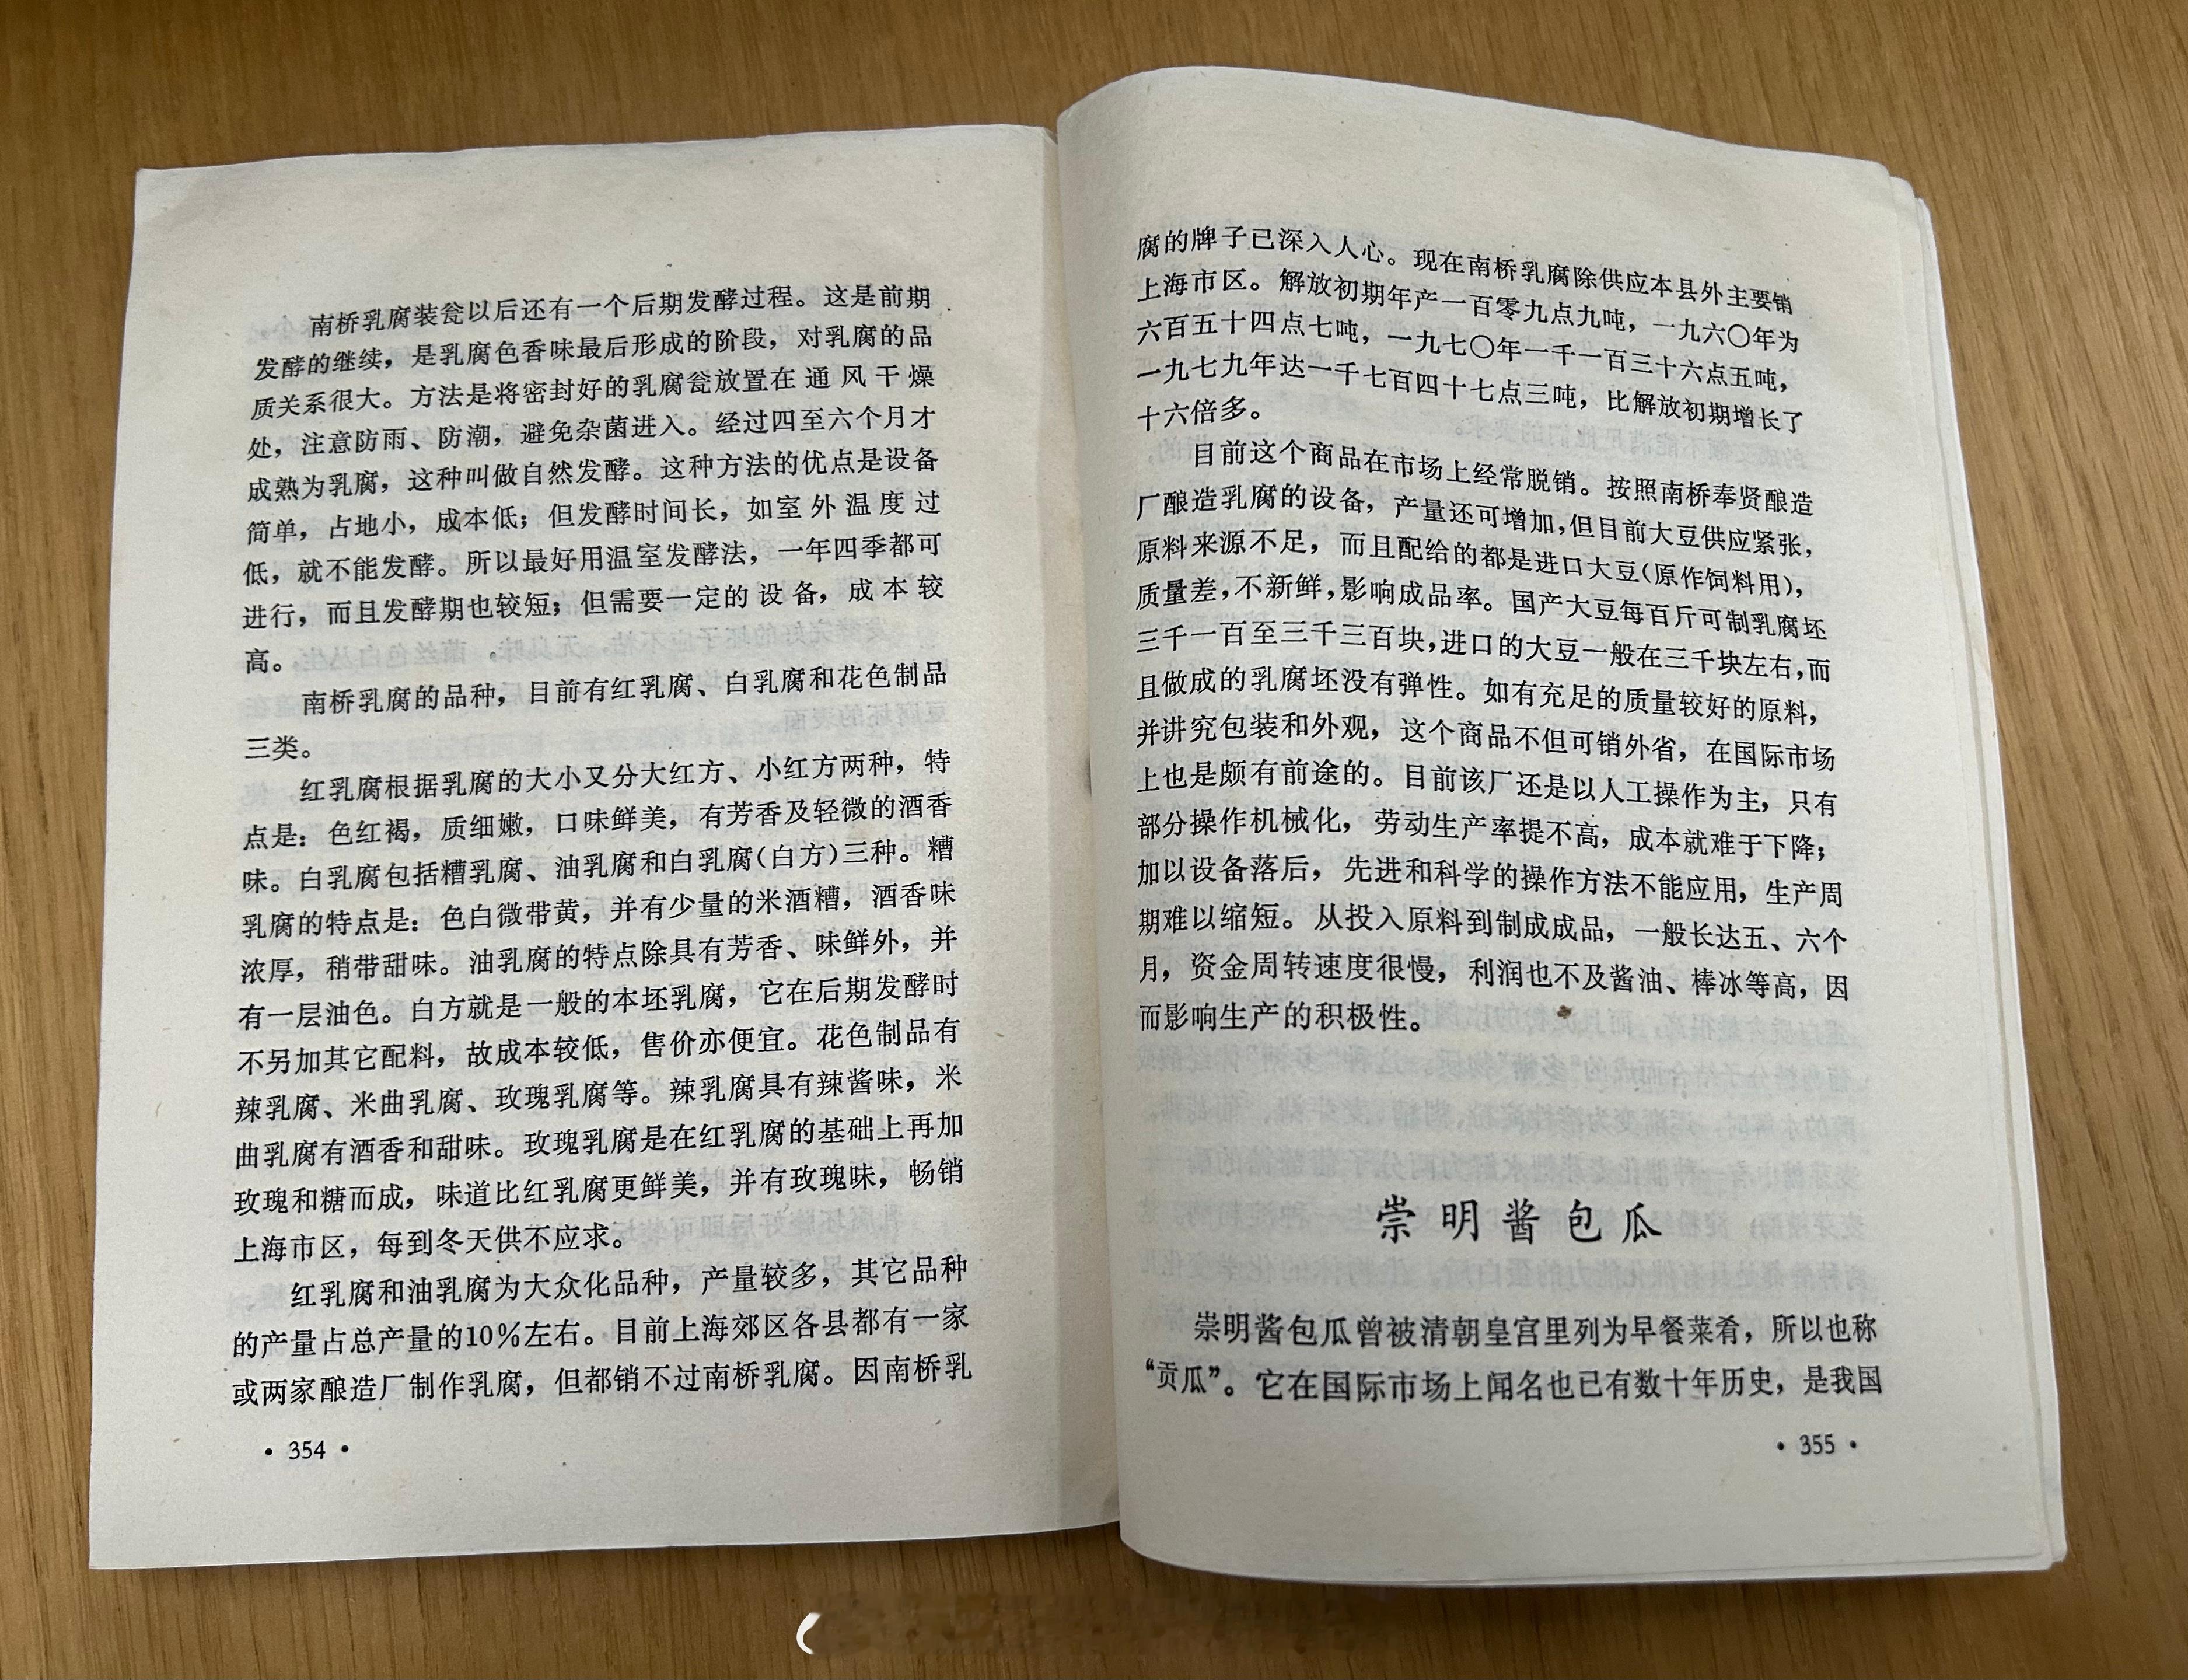 南桥乳腐装瓮以后还有一个后期发酵过程。这是前期
发酵的继续，是乳腐色香味最后形成的阶段，对乳腐的品
质关系很大。方法是将密封好的乳腐瓮放置在通风干燥
处，注意防雨、防潮，避免杂菌进入。经过四至六个月才
成熟为乳腐，这种叫做自然发酵。这种方法的优点是设备
简单，占地小，成本低；但发酵时间长，如室外温度过
低，就不能发酵。所以最好用温室发酵法，一年四季都可
进行，而且发酵期也较短；但需要一定的设备，成本较
高。
南桥乳腐的品种，目前有红乳腐、白乳腐和花色制品
三类。
红乳腐根据乳腐的大小又分大红方、小红方两种，特
点是：色红褐，质细嫩，口味鲜美，有芳香及轻微的酒香
味。白乳腐包括糟乳腐、油乳腐和白乳腐(白方)三种。糟
乳腐的特点是：色白微带黄，并有少量的米酒糟，酒香味
浓厚，稍带甜味。油乳腐的特点除具有芳香、味鲜外，并
有一层油色。白方就是一般的本坯乳腐，它在后期发酵时
不另加其它配料，故成本较低，售价亦便宜。花色制品有
辣乳腐、米曲乳腐、玫瑰乳腐等。辣乳腐具有辣酱味，米
曲乳腐有酒香和甜味。玫瑰乳腐是在红乳腐的基础上再加
玫瑰和糖而成，味道比红乳腐更鲜美，并有玫瑰味，畅销
上海市区，每到冬天供不应求。
红乳腐和油乳腐为大众化品种，产量较多，其它品种
的产量占总产量的10%左右。目前上海郊区各县都有一家
或两家酿造厂制作乳腐，但都销不过南桥乳腐。因南桥乳
• 354 •
腐的牌子已深入人心。现在南桥乳腐除供应本县外主要销
上海市区。解放初期年产一百零九点九吨，一九六〇年为
六百五十四点七吨，一九七〇年一千一百三十六点五吨，
一九七九年达一千七百四十七点三吨，比解放初期增长了
十六倍多。
目前这个商品在市场上经常脱销。按照南桥奉贤酿造
厂酿造乳腐的设备，产量还可增加，但目前大豆供应紧张，
原料来源不足，而且配给的都是进口大豆(原作饲料用)，
质量差，不新鲜，影响成品率。国产大豆每百斤可制乳腐坯
三千一百至三千三百块，进口的大豆一般在三千块左右，而
且做成的乳腐坯没有弹性。如有充足的质量较好的原料，
并讲究包装和外观，这个商品不但可销外省，在国际市场
上也是颇有前途的。目前该厂还是以人工操作为主，只有
部分操作机械化，劳动生产率提不高，成本就难于下降；
加以设备落后，先进和科学的操作方法不能应用，生产周
期难以缩短。从投入原料到制成成品，一般长达五、六个
月，资金周转速度很慢，利润也不及酱油、棒冰等高，因
而影响生产的积极性。
崇明酱包瓜
崇明酱包瓜曾被清朝皇宫里列为早餐菜肴，所以也称
“贡瓜”。它在国际市场上闻名也已有数十年历史，是我国
• 355 •